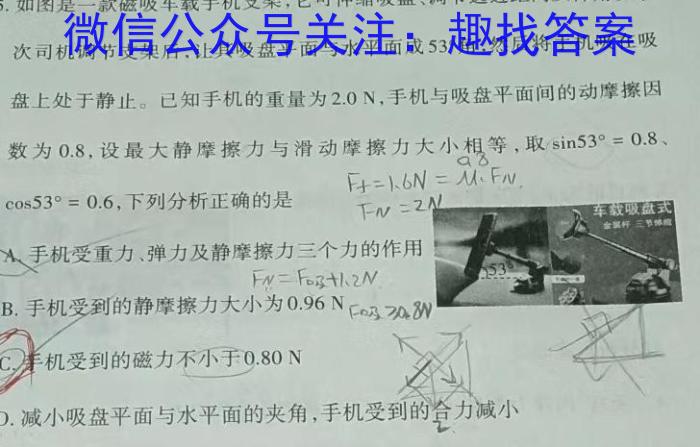 5. 如图是一款磁吸车载手机支架,它可伸缩吸盘、调节
微信公众号关注：趣找答案
次司机调节支架后,让其吸盘平面与水平面成53°角,然后将手机吸在吸
盘上处于静止。已知手机的重量为2.0 N,手机与吸盘平面间的动摩擦因
数为 0.8,设最大静摩擦力与滑动摩擦力大小相等,取 sin53° = 0.8、
0.8
cos53° = 0.6,下列分析正确的是
F_f=1.6N = μ·F_N
F_N = 2N
车载吸盘式
金属杆 三节伸缩
53°
A. 手机受重力、弹力及静摩擦力三个力的作用
F_N = F_磁+1.2N
B. 手机受到的静摩擦力大小为 0.96 N
F_磁≥0.8N
C. 手机受到的磁力不小于 0.80 N
D. 减小吸盘平面与水平面的夹角,手机受到的合力减小